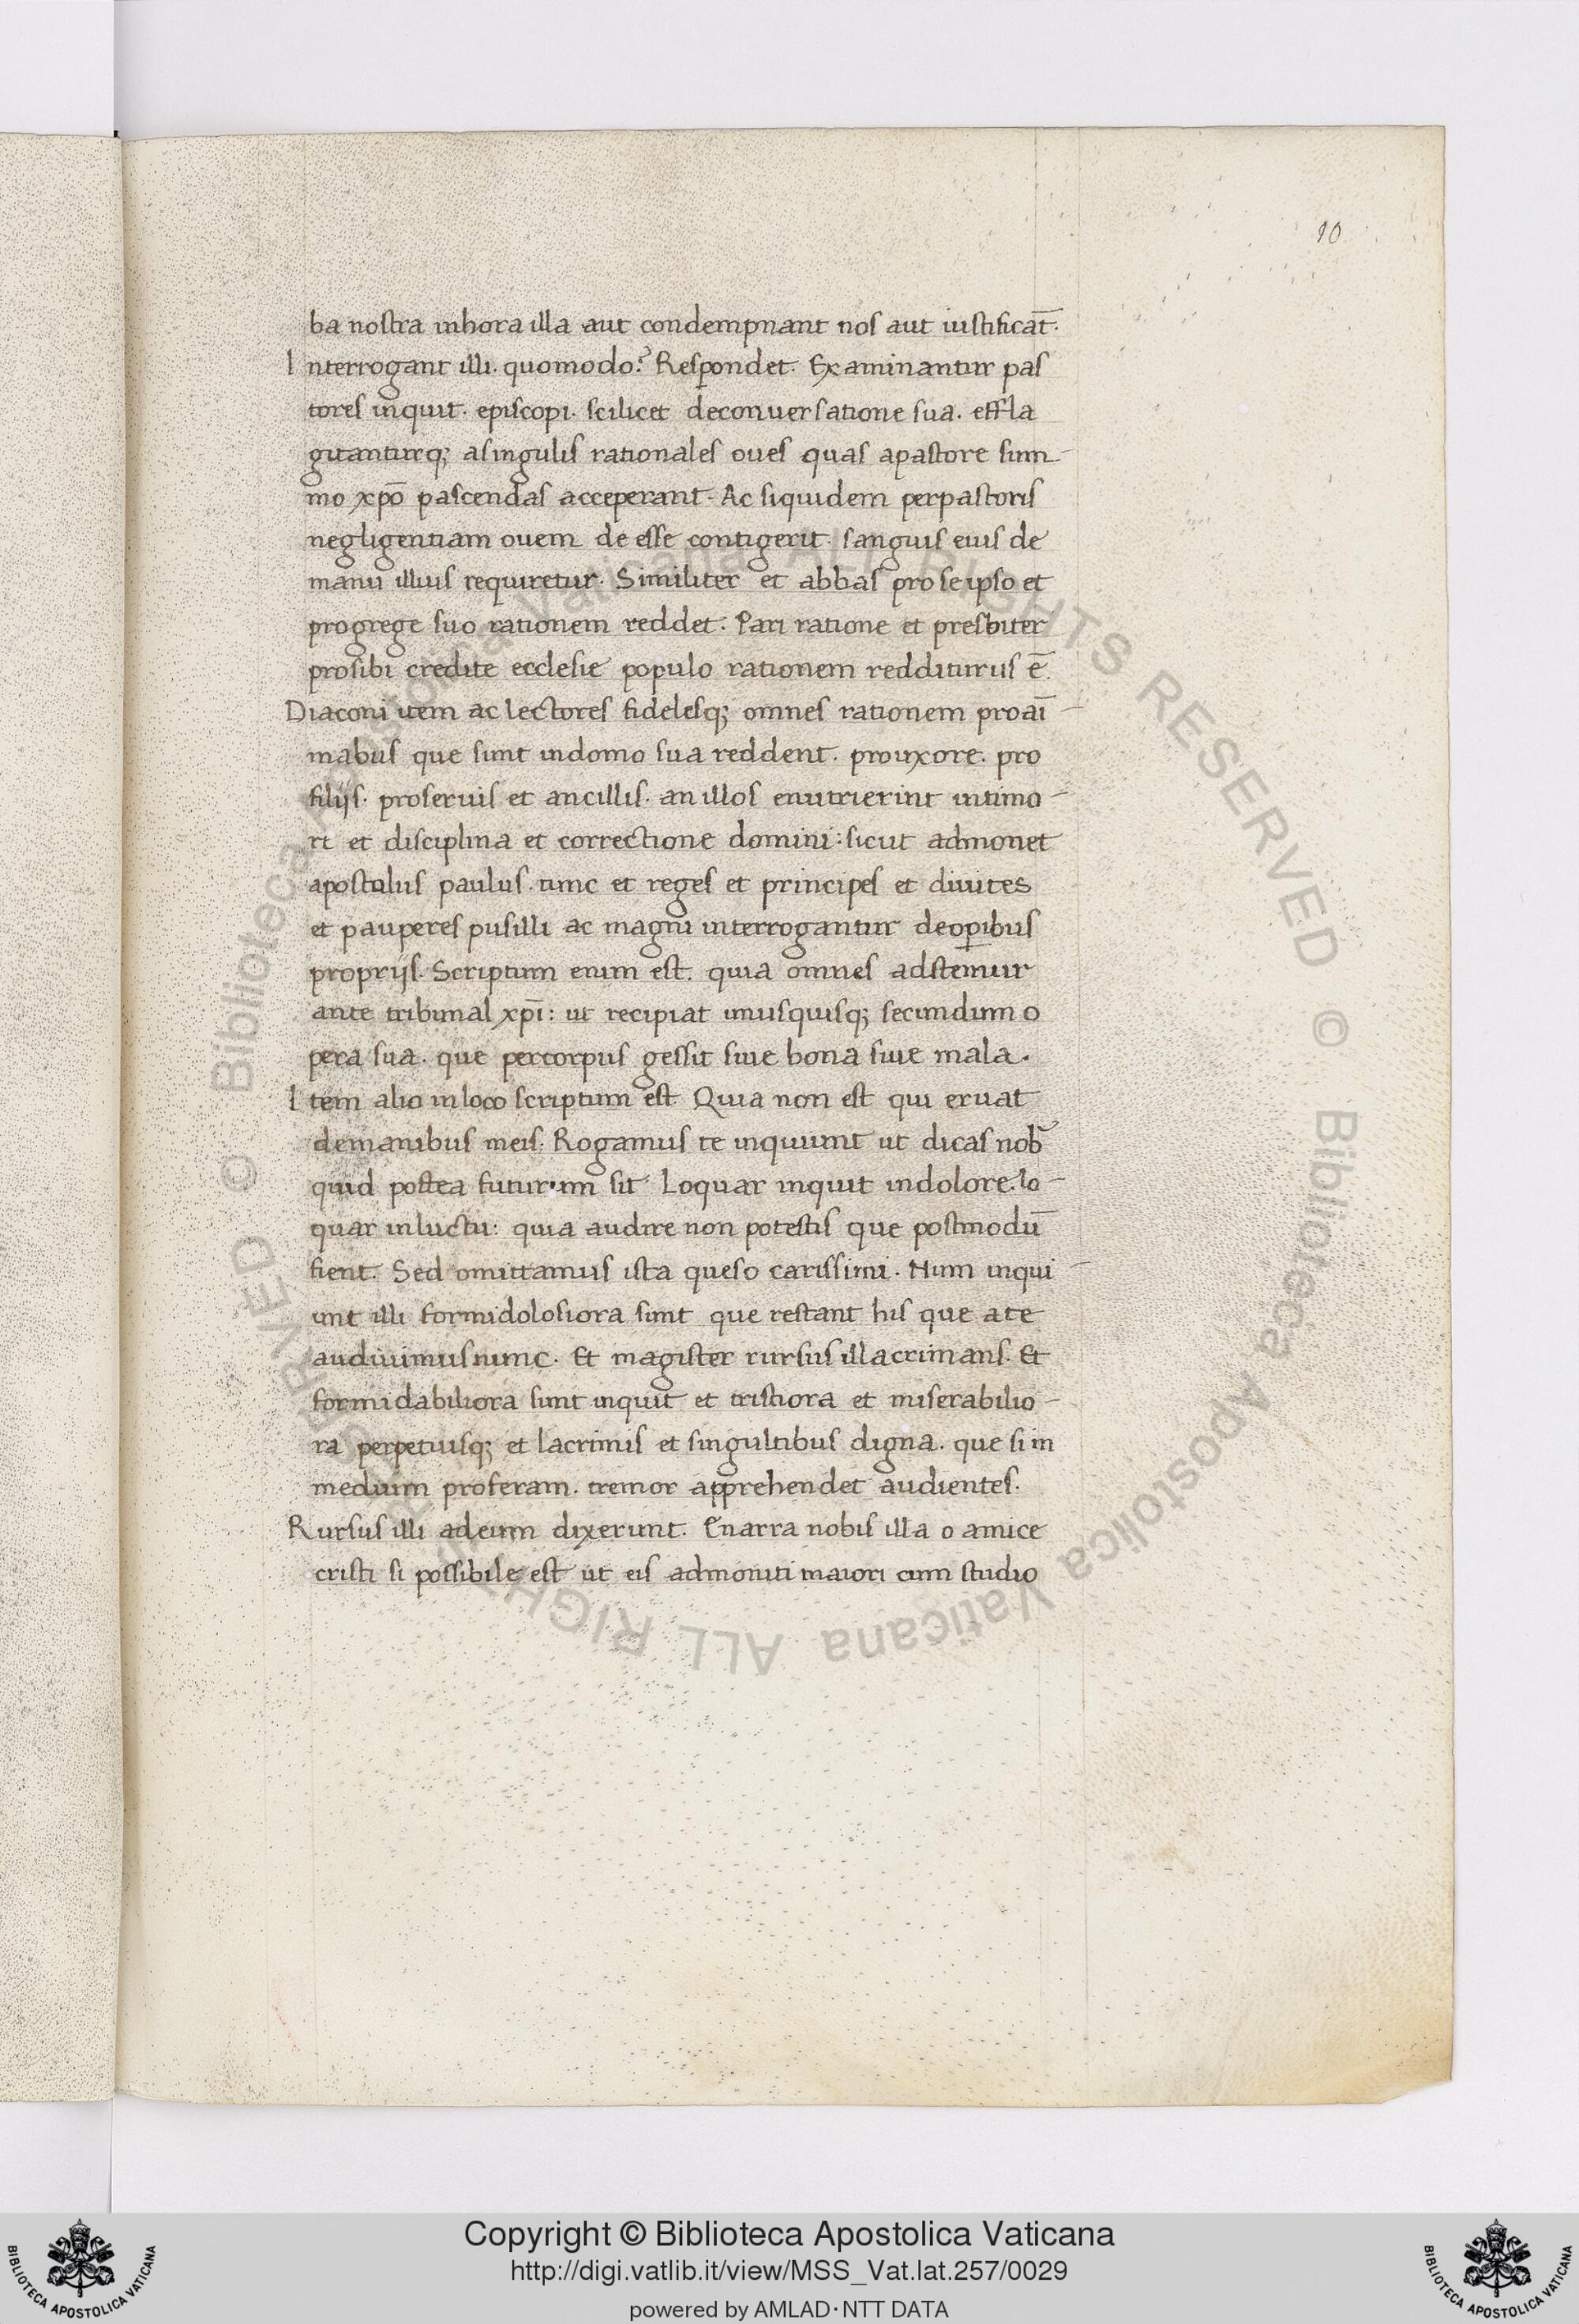 10
ba nostra in hora illa aut condempnant nos aut iustificāt.
Interrogant illi. quomodo? Respondet. Examinantur pas
tores inquit. episcopi. scilicet de conversatione sua. effla
gitanturq; a singulis rationales oves quas a pastore sum-
mo xp̄o pascendas acceperant. Ac siquidem per pastoris
negligentiam ovem de esse contigerit. sanguis eius de
manu illius requiretur. Similiter et abbas pro se ipso et
pro grege suo rationem reddet. Pari ratione et presbiter
pro sibi credite ecclesie populo rationem redditurus ē.
Diaconi item ac lectores fidelesq; omnes rationem pro aī-
mabus que sunt in domo sua reddent. pro uxore. pro
filijs. pro servis et ancillis. an illos enutrierint in timo-
ri et disciplina et correctione domini: sicut admonet
apostolus paulus. tunc et reges et principes et divites
et pauperes pusilli ac magni interrogantur de op̱ibus
proprijs. Scriptum enim est. quia omnes adstem̄ur
ante tribunal xp̄i: ut recipiat unusquisq; secundum o
pera sua. que per corpus gessit sive bona sive mala.
Item alio in loco scriptum est. Quia non est qui eruat
de manibus meis. Rogamus te inquiunt ut dicas nob̄
quid postea futurum sit. Loquar inquit in dolore. lo-
quar in luctu: quia audire non potestis que postmodū
fient. Sed omittamus ista queso carissimi. Num inqui-
unt illi formidolosiora sunt que restant his que a te
audivimus nunc. Et magister rursus illacrimans. Et
formidabiliora sunt inquit et tristiora et miserabilio-
ra perpetuisq; et lacrimis et singultibus digna. que si in
medium proferam. tremor apprehendet audientes.
Rursus illi ad eum dixerunt. Enarra nobis illa o amice
cristi si possibile est ut eis admoniti maiori cum studio
© Biblioteca Apostolica Vaticana ALL RIGHTS RESERVED © Biblioteca Apostolica Vaticana ALL RIGHTS RESERVED
Copyright © Biblioteca Apostolica Vaticana
http://digi.vatlib.it/view/MSS_Vat.lat.257/0029
powered by AMLAD·NTT DATA
BIBLIOTECA APOSTOLICA VATICANA
BIBLIOTECA APOSTOLICA VATICANA